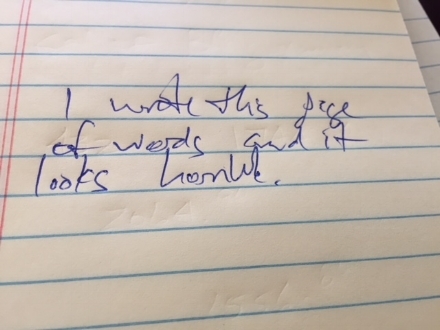 I wrote this page
of words and it
looks horrible.